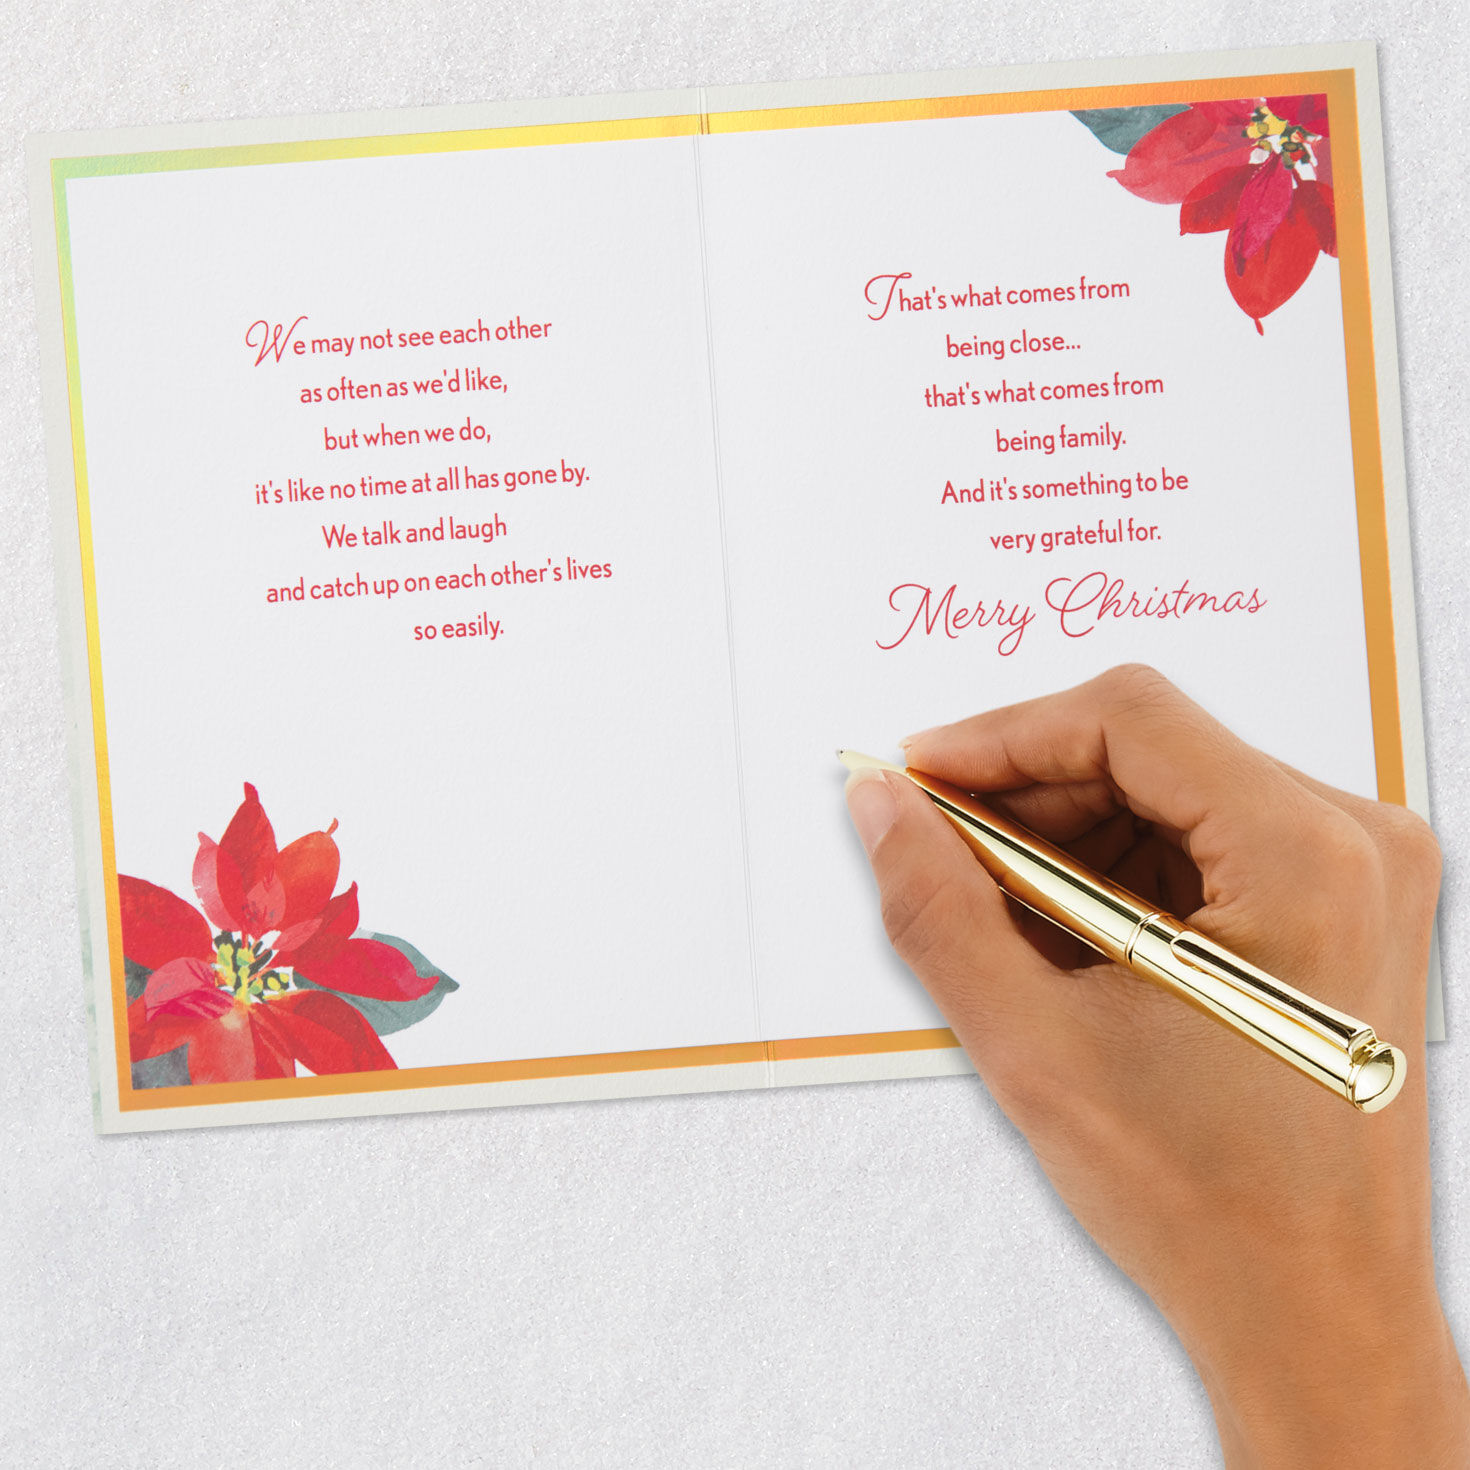 We may not see each other
as often as we'd like,
but when we do,
it's like no time at all has gone by.
We talk and laugh
and catch up on each other's lives
so easily.
That's what comes from
being close...
that's what comes from
being family.
And it's something to be
very grateful for.
Merry Christmas